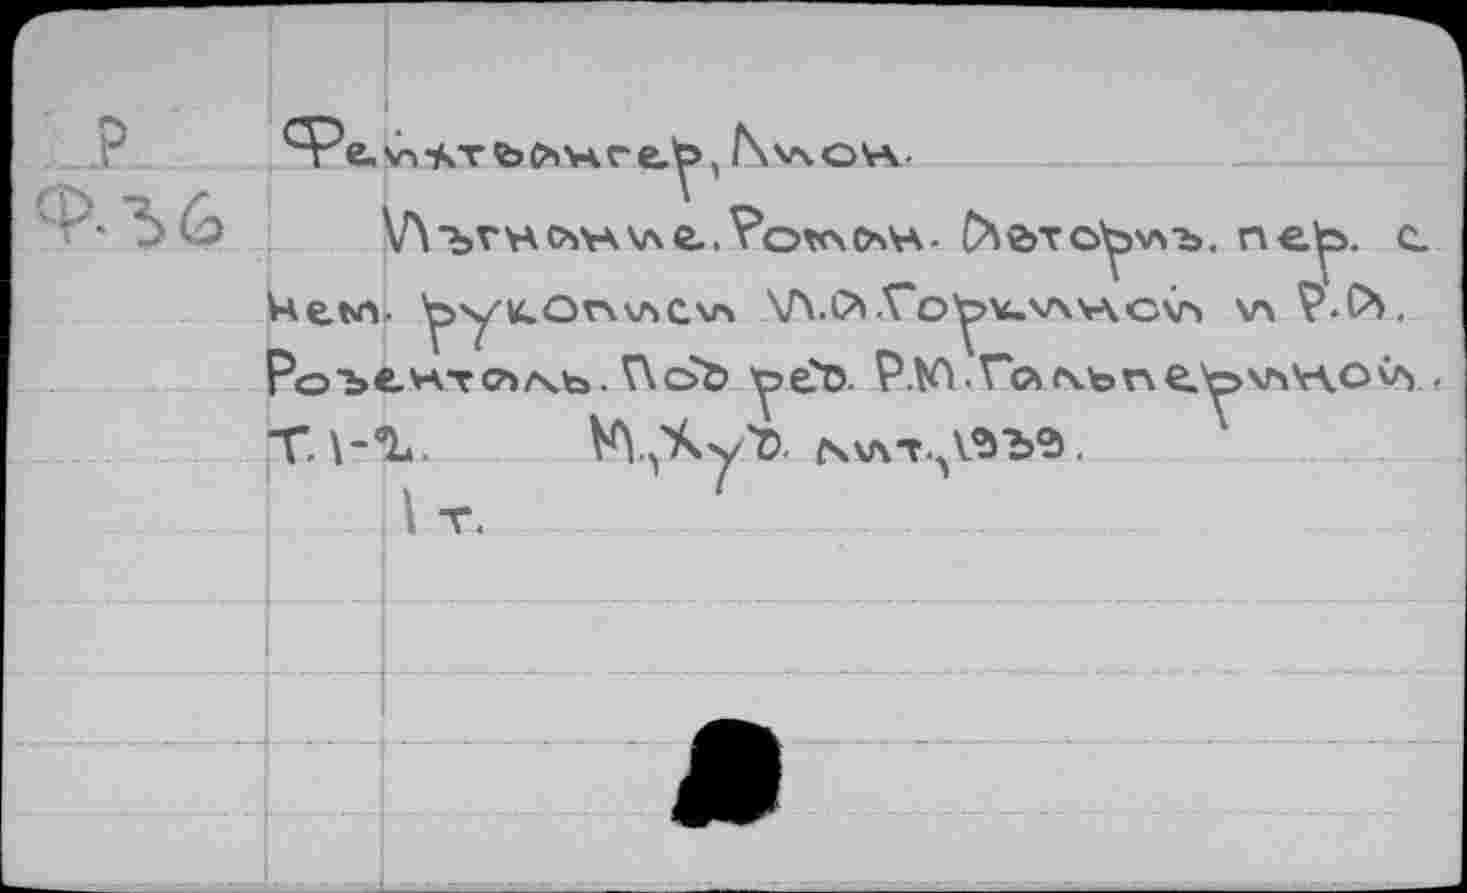 Р Фейхтвангер, Лион.
Ф-36 Изгнание. Роман. Авториз. пер. с
нем. рукописи И.А.Горкиной и Р.А.
Розенталь. Под ред. Р.М.Гальпериной.
Т.1-2. М., Худ. лит., 1939.
1 т.